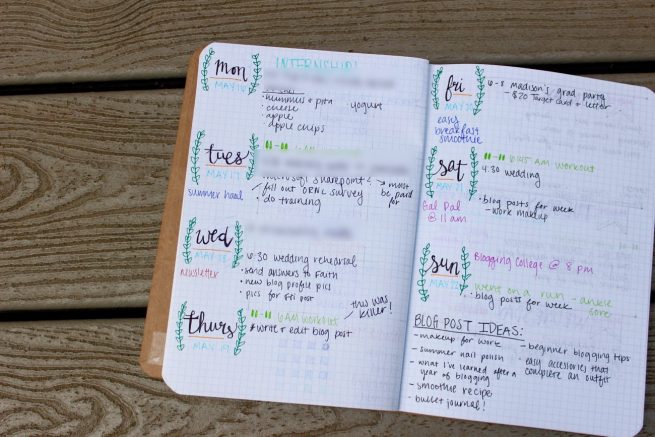 mon
MAY 16
INTERNSHIP!
• hummus + pita
• cheese
• apple
• apple chips
yogurt
tues
MAY 17
summer haul
6 AM workout
Microsoft Sharepoint 2
fill out ORNL survey
• do training
must be paid for
wed
MAY 18
newsletter
6:30 wedding rehearsal
• send answers to Faith
• new blog profile pics
• pics for Fri post
thurs
MAY 19
6 AM workout
this was killer!
write + edit blog post
fri
MAY 20
easy
breakfast
smoothie
6-8 Madison's grad party
- $20 Target card + letter
sat
MAY 21
Gal Pal
@ 11 am
6:45 AM workout
4:30 wedding
• blog posts for week
- work makeup
sun
MAY 22
Blogging College @ 8 pm
went on a run - ankle
sore
• blog posts for week
BLOG POST IDEAS:
- makeup for work
- summer nail polish
- what I've learned after a
year of blogging
- smoothie recipe
- bullet journal!
- beginner blogging tips
easy accessories that
complete an outfit